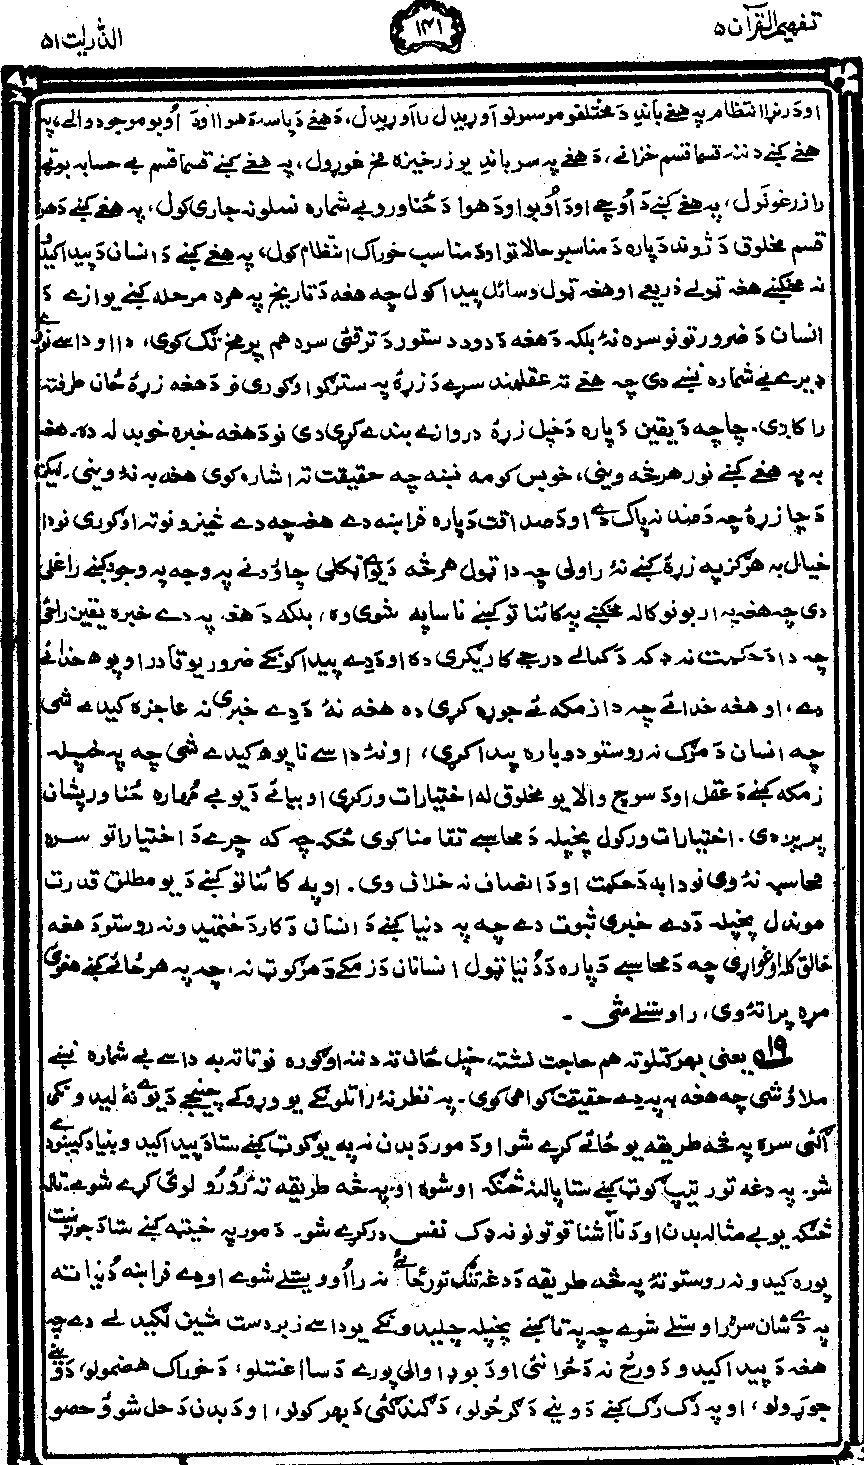 تفهیم القرآن ۵
۱۴۱
الذّٰریٰت ۵۱
اود رنړا انتظام په هغې باندې د مختلفو موسمونو اوړیدل را اوړیدل، د هغې د پاسه د هوا اود اُوبو موجود والے، په
هغې کښې دننه قسما قسم خزانے، د هغې په سر باندې یو زرخیزه مخ خورول، په هغې کښې قسما قسم بے حسابه بوټی
را زرغونول، په هغې کښې د اُوچے اود اُوبو اود هوا د ځناورو بے شماره نسلونه جاری کول، په هغې کښې د هر
قسم مخلوق د ژوند دپاره د مناسبو حالاتو اود مناسب خوراک انتظام کول، په هغې کښې د انسان د پیدا کیدو
نه مخکښې هغه ټولے ذریعے او هغه ټول وسائل پیدا کول چه هغه د تاریخ په هره مرحله کښې یوازے د
انسان د ضرورتونو سره نۀ بلکه د هغه د دود دستور د ترقئ سره هم یو مخ تګ کوی، دا او داسے نورے
ډیرے بے شماره نښے دی چه هغے ته عقلمند سړے د زړۀ په سترګو اوګوری نو د هغه زړۀ ځان طرفته
را کاږی. چا چه د یقین دپاره د خپل زړۀ دروازے بندے کړی دی نو د هغه خبره خو بدله ده. هغه
به په هغې کښې نور هر څه وینی، خو بس کومه نښه چه حقیقت ته اشاره کوی هغه به نۀ وینی. لیکن
د چا زړۀ چه د ضد نه پاک دے او د صداقت دپاره فراښته دے هغه چه دے څیزونو ته اوګوری نو دا
خیال به هرګز په زړۀ کښې نۀ راولی چه دا ټول هر څه د یوے ټکلی چاؤدنے په وجه په وجود کښې راغلی
دی چه هغه په اربونو کاله مخکښې په کائناتو کښې ناسپاپه شوی وه، بلکه د هغه په دے خبره یقین راځی
چه دا د حکمت نه ډکه د کمالے درجے کاریګری ده او د دے پیدا کوونکے ضرور یو قادر او پوهه خدائے
دے، او هغه خدائے چه دا زمکه ئے جوړه کړی ده هغه نۀ د دے خبرې نه عاجزه کیدے شی
چه انسان د مرګ نه روستو دوباره پیدا کړی، او نۀ داسے ناپوهه کیدے شی چه په خپله
زمکه کښې د عقل او د سوچ والا یو مخلوق له اختیارات ورکړی او بیائے د یو بے مُهاره ځناور پشان
پریږدی. اختیارات ورکول پخپله د محاسبے تقاضا کوی ځکه چه که چرے د اختیاراتو سره
محاسبه نۀ وی نو دا به د حکمت او د انصاف نه خلاف وی. او په کائناتو کښې د یو مطلق قدرت
موندل پخپله د دے خبرې ثبوت دے چه په دنیا کښې د انسان د کار د ختمیدو نه روستو د هغه
خالق کله اوغواړی چه د محاسبے دپاره د دُنیا ټول انسانان د زمکے د هر کوټ نه، چه په هر ځائے کښې هغوی
مړه پراتۀ وی، راوستلے شی -
۱۹ یعنی بهر کتلو ته هم حاجت نشته، خپل ځان ته دننه اوګوره نو تا ته به داسے بے شماره نښے
ملاؤ شی چه هغه به په دے حقیقت ګواهی کوی. په نظر نۀ راتلونکے یو وړوکے چینجے د یوے نۀ لیدونکی
اګئ سره په څه طریقه یو ځائے کړے شو او د مور د بدن نه په یو کوټ کښې ستا د پیدا کیدو بنیاد کیښودے
شو. په دغه تور تیپ کوټ کښې ستا پالنه څنګه اوشوه او په څه طریقه ته وُرو وُرو لوئ کړے شوے. تا له
څنګه یو بے مثاله بدن او د ناآشنا قوتونو نه ډک نفس درکړے شو. د مور په خیټه کښې ستا د جوړښت
پوره کیدو نه روستو تۀ په څه طریقه د دغه تنګ تور ځائے نه را اُوویستلے شوے او دے فراښته دُنیا ته
په دے شان سره راوستلے شوے چه په تا کښې پخپله چلیدونکے یو داسے زبردست مشین لګیدلے دے چه
هغه د پیدا کیدو د ورځ نه د ځوانئ او د بوډا والی پورے د سا اغستلو، د خوراک هضمولو، د وینے
جوړولو، او په رګ رګ کښې د وینے د ګرځولو، د ګندګئ د بهر کولو، او د بدن د حل شوؤ حصو